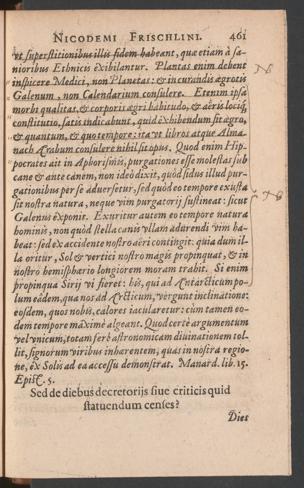 NICODEMI FRISCHLINI. 461
vt superstitionibus illis fidem habeant, quæ etiam à sa-
nioribus Ethnicis exibilantur. Plantas enim debent
inspicere Medici, non Planetas: & in curandis ægrotis
Galenum, non Calendarium consulere. Etenim ipsa
morbi qualitas, & corporis ægri habitudo, & aëris locíq;
constitutio, satis indicabunt, quid exhibendum sit ægro,
& quantum, & quo tempore: ita vt libros atque Alma-
nach Arabum consulere nihil sit opus. Quod enim Hip-
pocrates ait in Aphorismis, purgationes esse molestas sub
cane & ante canem, non ideò dixit, quòd sidus illud pur-
gationibus per se aduersetur, sed quòd eo tempore exusta
sit nostra natura, neque vim purgatorij sustineat: sicut
Galenus exponit. Exuritur autem eo tempore natura
hominis, non quòd stella canis vllam adurendi vim ha-
beat: sed ex accidente nostro aëri contingit: quia dum il-
la oritur, Sol & vertici nostro magis propinquat, & in
nostro hemisphærio longiorem moram trahit. Si enim
propinqua Sirij vi fieret: hi, qui ad Antarcticum po-
lum eâdem, qua nos ad Arcticum, vergunt inclinatione:
eosdem, quos nobis, calores iacularetur: cùm tamen eo-
dem tempore maximè algeant. Quod certè argumentum
vel vnicum, totam ferè astronomicam diuinationem tol-
lit, signorum viribus inhærentem, quas in nostra regio-
ne, ex Solis ad ea accessu demonstrat. Manard. lib. 15.
Epist. 5.
Sed de diebus decretorijs siue criticis quid
statuendum censes?
Dies